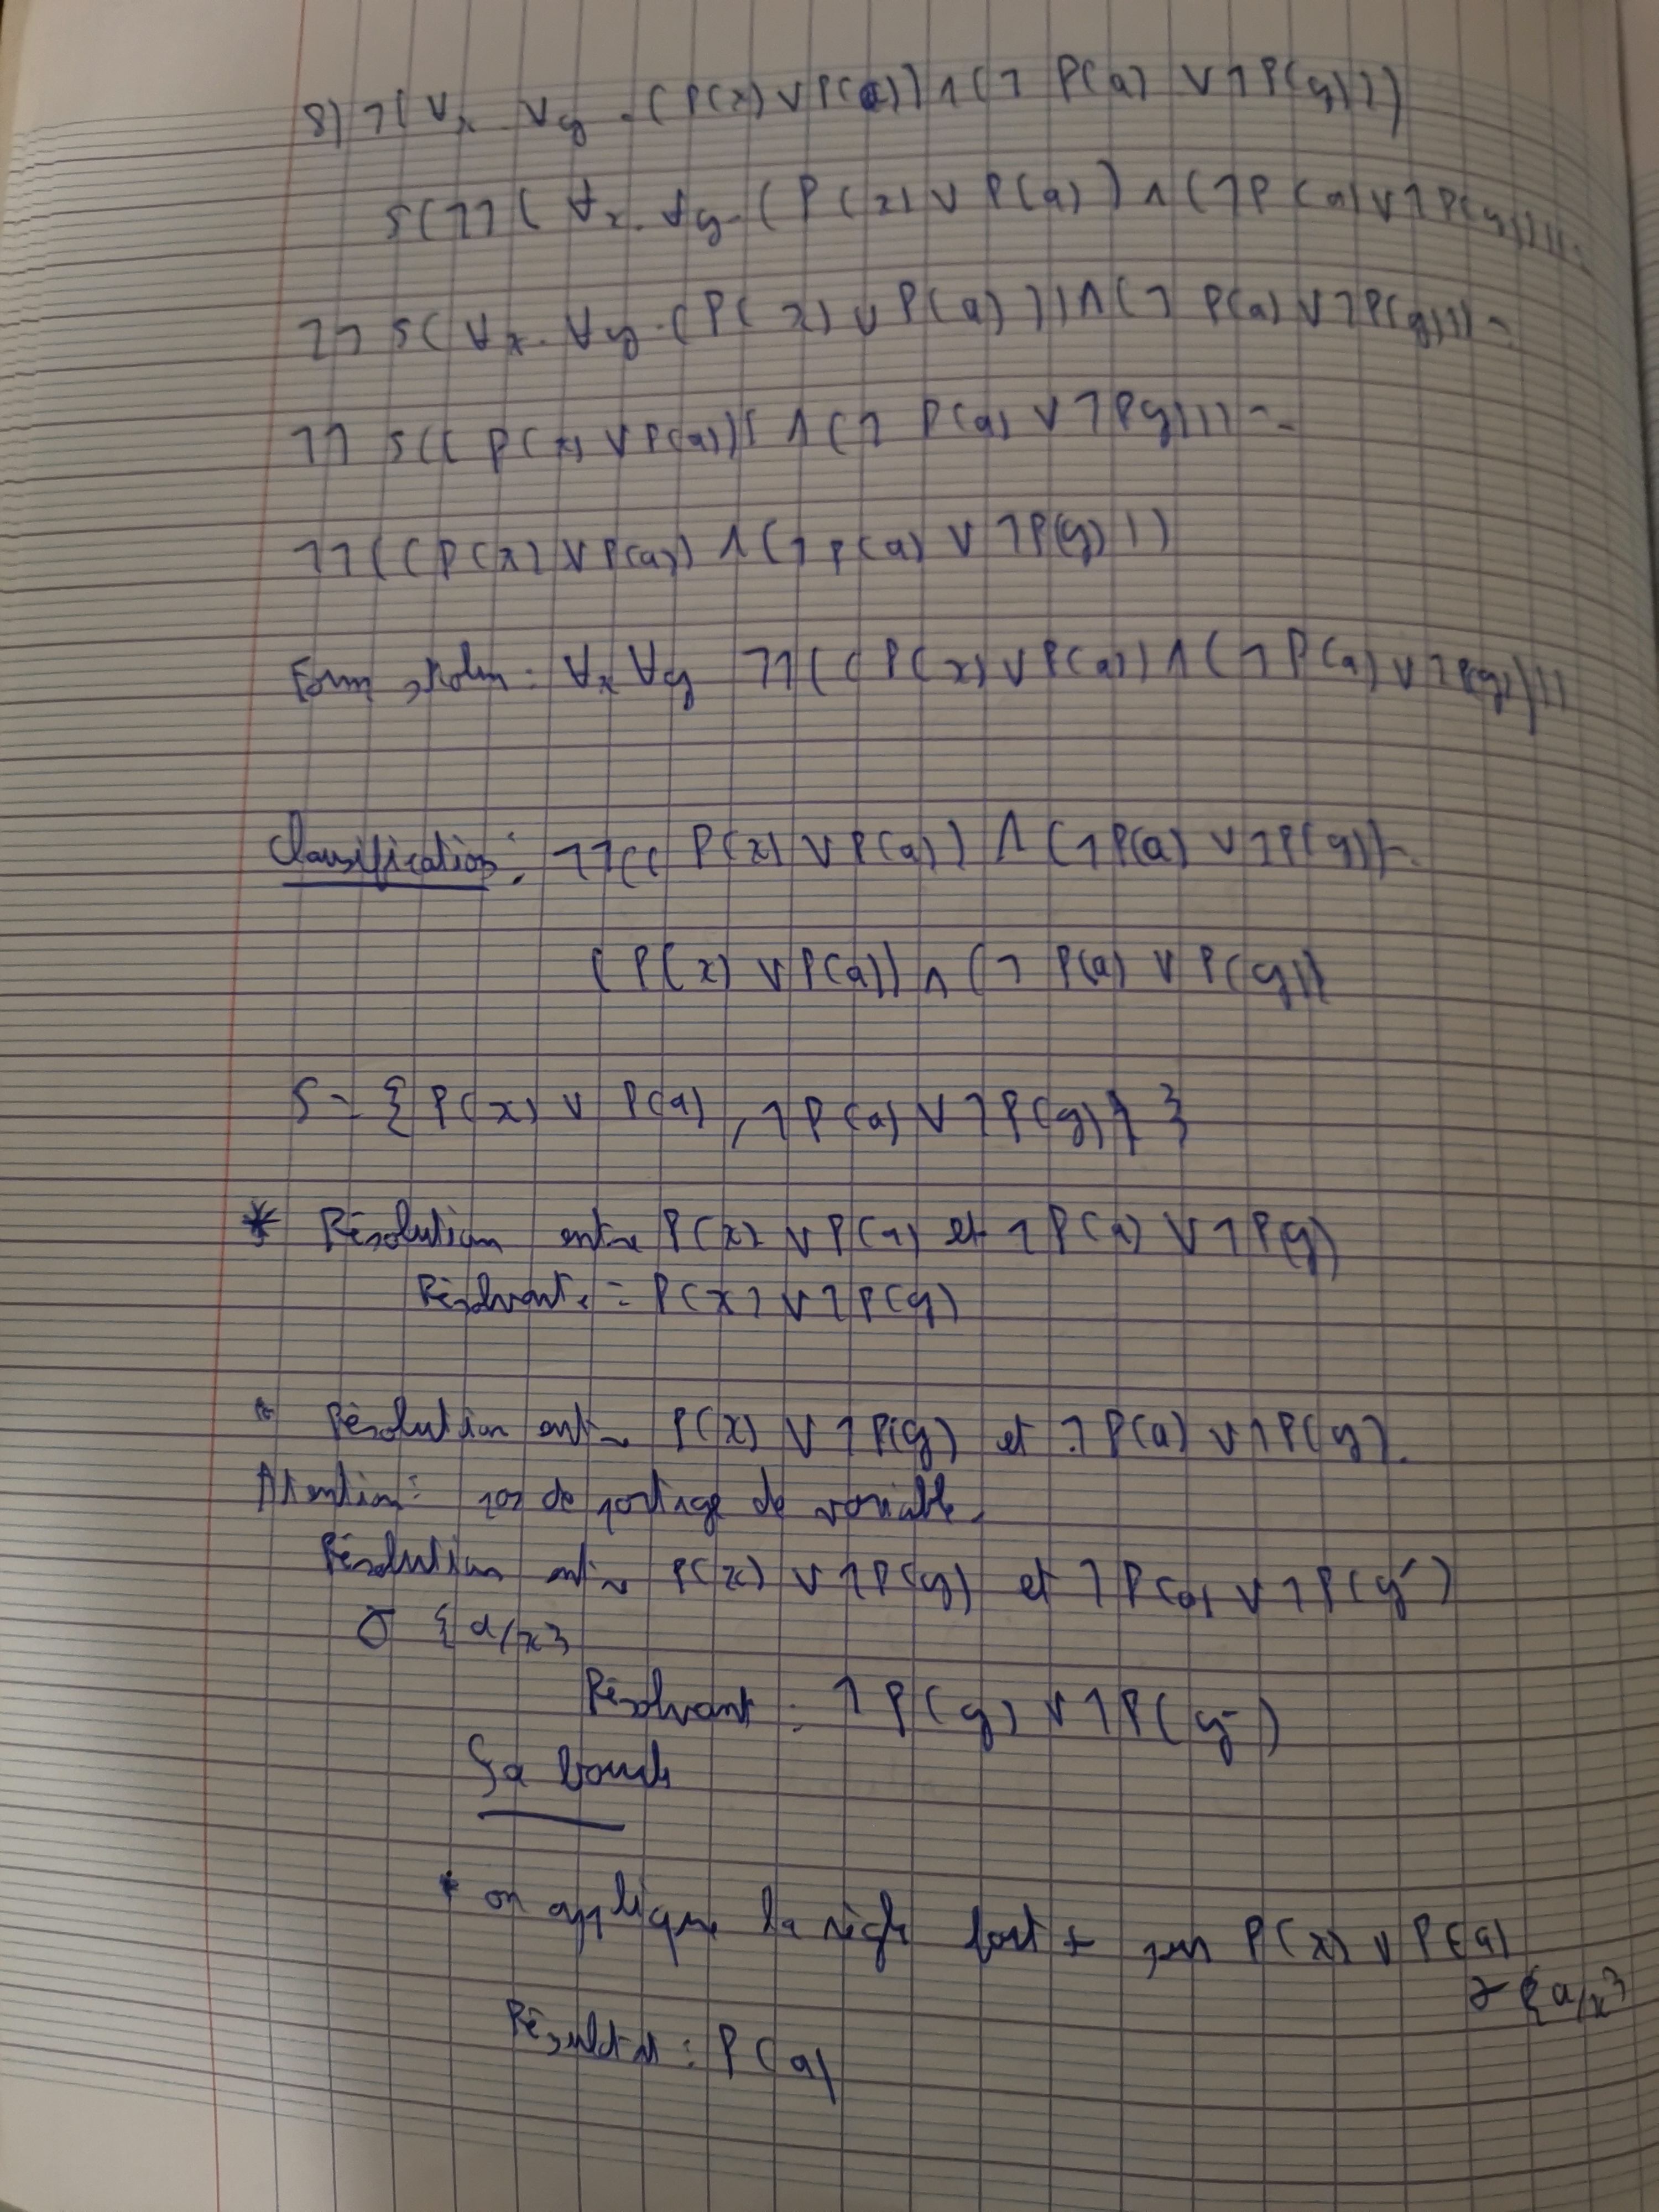 8) ¬(∀x ∀y . (P(x) ∨ P(a)) ∧ (¬ P(a) ∨ ¬P(y)))
s(¬¬( ∀x. ∀y. (P(x) ∨ P(a)) ∧ (¬P(a) ∨ ¬P(y))))
¬¬ s(∀x. ∀y. (P(x) ∨ P(a))) ∧ (¬ P(a) ∨ ¬P(y))) =
¬¬ s(( P(x) ∨ P(a))) ∧ (¬ P(a) ∨ ¬Py))) =
¬¬((P(x) ∨ P(a)) ∧ (¬P(a) ∨ ¬P(y)))
Form skolem : ∀x ∀y ¬¬((P(x) ∨ P(a)) ∧ (¬P(a) ∨ ¬P(y)))
Clausification : ¬¬(( P(x) ∨ P(a)) ∧ (¬P(a) ∨ ¬P(y))
(P(x) ∨ P(a)) ∧ (¬ P(a) ∨ P(y))
S = { P(x) ∨ P(a) , ¬P(a) ∨ ¬P(y) } }
* Résolution entre P(x) ∨ P(a) et ¬P(a) ∨ ¬P(y)
Résolvante = P(x) ∨ ¬P(y)
* Résolution entre P(x) ∨ ¬P(y) et ¬P(a) ∨ ¬P(y).
Attention : pas de partage de variable.
Résolution entre P(x) ∨ ¬P(y) et ¬P(a) ∨ ¬P(y')
σ {a/x}
Résolvant : ¬P(y) ∨ ¬P(y')
Ça boucle
* on applique la règle fact + sur P(x) ∨ P(a)
{a/x}
Résultat : P(a)